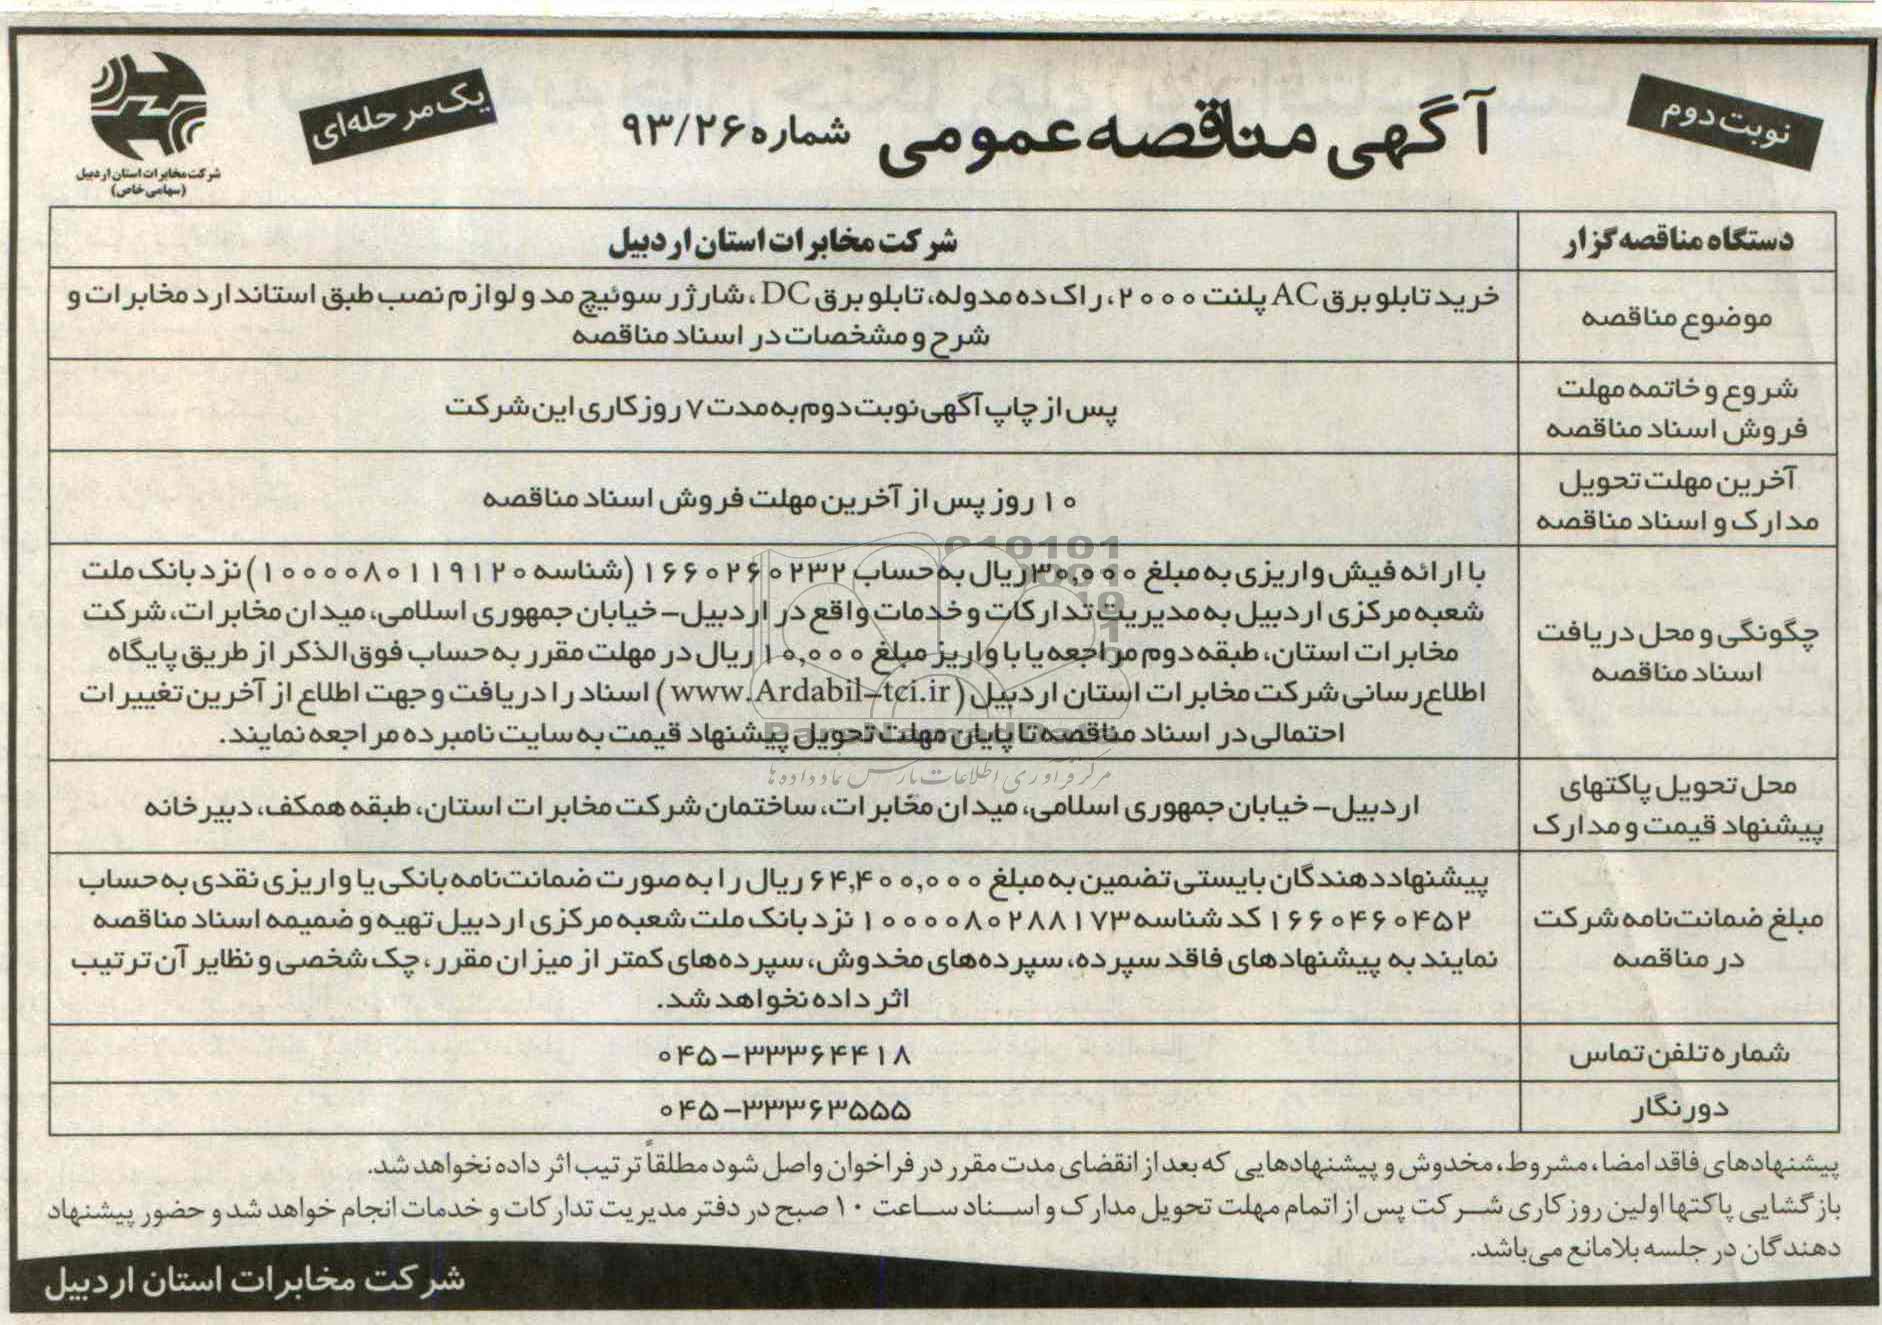 نوبت دوم
آگهی مناقصه عمومی شماره ۹۳/۲۶
یک مرحله‌ای
شرکت مخابرات استان اردبیل
(سهامی خاص)
دستگاه مناقصه گزار
شرکت مخابرات استان اردبیل
موضوع مناقصه
خرید تابلو برق AC پلنت ۲۰۰۰، راک ده مدوله، تابلو برق DC، شارژر سوئیچ مد و لوازم نصب طبق استاندارد مخابرات و
شرح و مشخصات در اسناد مناقصه
شروع و خاتمه مهلت
فروش اسناد مناقصه
پس از چاپ آگهی نوبت دوم به مدت ۷ روز کاری این شرکت
آخرین مهلت تحویل
مدارک و اسناد مناقصه
۱۰ روز پس از آخرین مهلت فروش اسناد مناقصه
چگونگی و محل دریافت
اسناد مناقصه
با ارائه فیش واریزی به مبلغ ۳۰,۰۰۰ ریال به حساب ۱۶۶۰۲۶۰۲۳۲ (شناسه ۱۰۰۰۰۸۰۱۱۹۱۲۰) نزد بانک ملت
شعبه مرکزی اردبیل به مدیریت تدارکات و خدمات واقع در اردبیل– خیابان جمهوری اسلامی، میدان مخابرات، شرکت
مخابرات استان، طبقه دوم مراجعه یا با واریز مبلغ ۱۰,۰۰۰ ریال در مهلت مقرر به حساب فوق الذکر از طریق پایگاه
اطلاع رسانی شرکت مخابرات استان اردبیل (www.Ardabil-tci.ir) اسناد را دریافت و جهت اطلاع از آخرین تغییرات
احتمالی در اسناد مناقصه تا پایان مهلت تحویل پیشنهاد قیمت به سایت نامبرده مراجعه نمایند.
مرکز فرآوری اطلاعات پارس نماد داده ها
محل تحویل پاکتهای
پیشنهاد قیمت و مدارک
اردبیل– خیابان جمهوری اسلامی، میدان مخابرات، ساختمان شرکت مخابرات استان، طبقه همکف، دبیرخانه
مبلغ ضمانت‌نامه شرکت
در مناقصه
پیشنهاددهندگان بایستی تضمین به مبلغ ۶۴,۴۰۰,۰۰۰ ریال را به صورت ضمانت‌نامه بانکی یا واریزی نقدی به حساب
۱۶۶۰۴۶۰۴۵۲ کد شناسه ۱۰۰۰۰۸۰۲۸۸۱۷۳ نزد بانک ملت شعبه مرکزی اردبیل تهیه و ضمیمه اسناد مناقصه
نمایند به پیشنهادهای فاقد سپرده، سپرده‌های مخدوش، سپرده‌های کمتر از میزان مقرر، چک شخصی و نظایر آن ترتیب
اثر داده نخواهد شد.
شماره تلفن تماس
۰۴۵–۳۳۳۶۴۴۱۸
دورنگار
۰۴۵–۳۳۳۶۳۵۵۵
پیشنهادهای فاقد امضا، مشروط، مخدوش و پیشنهادهایی که بعد از انقضای مدت مقرر در فراخوان واصل شود مطلقاً ترتیب اثر داده نخواهد شد.
بازگشایی پاکتها اولین روز کاری شرکت پس از اتمام مهلت تحویل مدارک و اسناد ساعت ۱۰ صبح در دفتر مدیریت تدارکات و خدمات انجام خواهد شد و حضور پیشنهاد
دهندگان در جلسه بلامانع می‌باشد.
شرکت مخابرات استان اردبیل